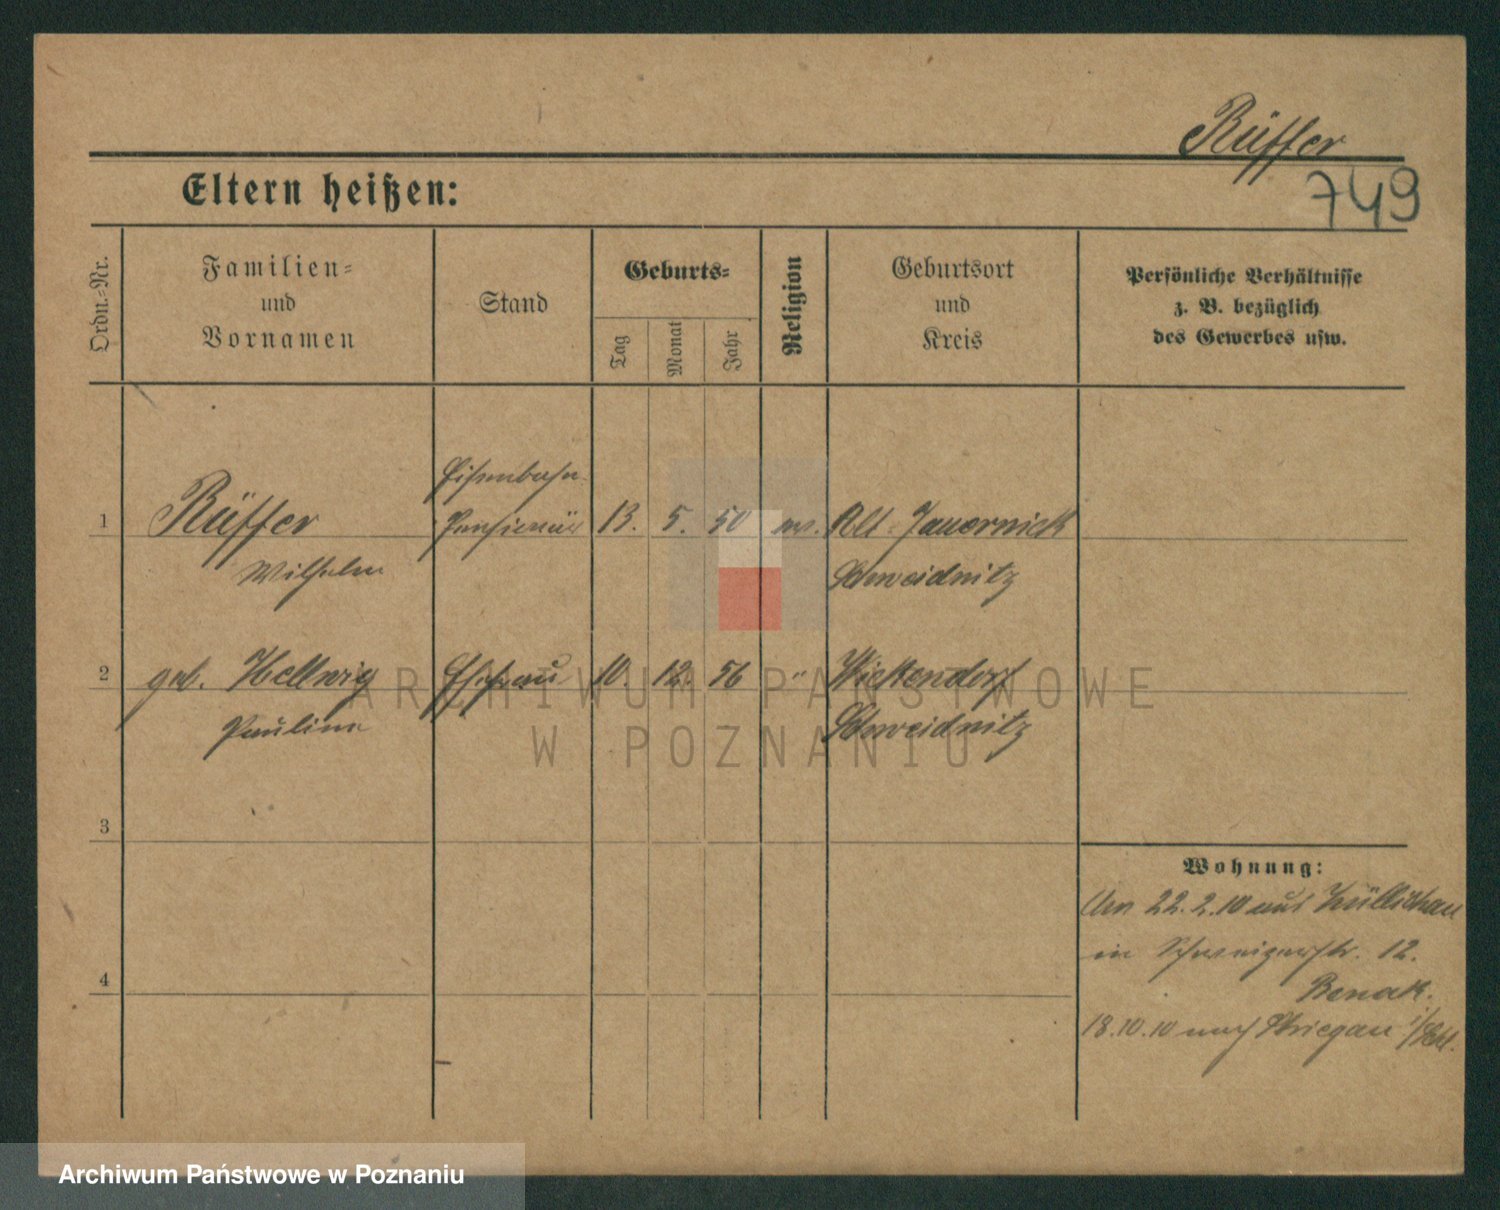 Rüffer
Eltern heißen:
749
Ordn.-Nr.
Familien-
und
Vornamen
Stand
Geburts-
Tag
Monat
Jahr
Religion
Geburtsort
und
Kreis
Persönliche Verhältnisse
z. B. bezüglich
des Gewerbes usw.
Eisenbahn-
1 Rüffer Pensionär 13. 5. 50 ev. Alt-Jauernick
Wilhelm Schweidnitz
2 geb. Hellwig Ehefrau 10. 12. 56 " 
Pauline Schweidnitz
3
4
Wohnung:
Am 22.2.10 aus Züllichau
in 12.
18.10.10 nach Striegau i/Schl.
ARCHIWUM PAŃSTWOWE
W POZNANIU
Archiwum Państwowe w Poznaniu